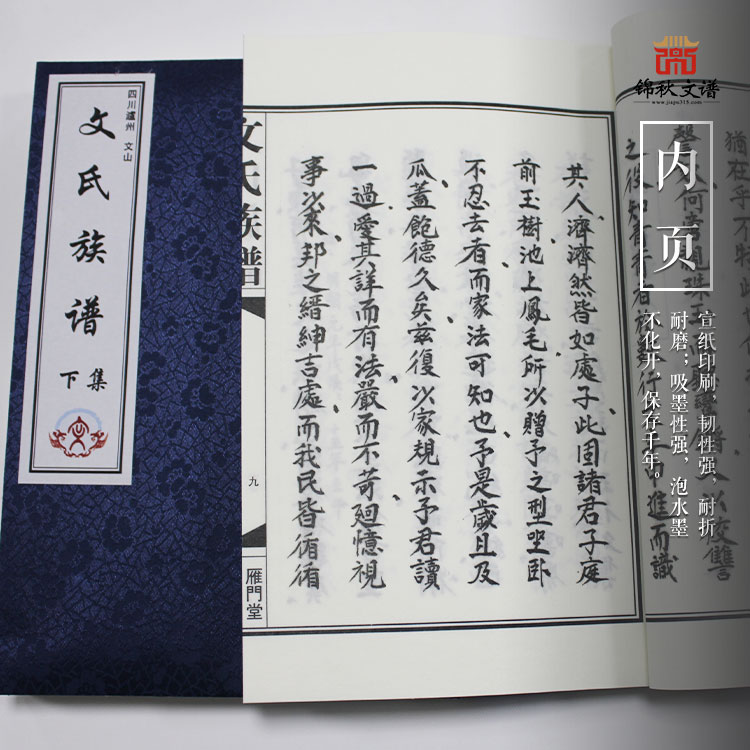 四川瀘州 文山
文氏族谱
下集
文氏族譜
九
雁門堂
其人濟濟然皆如處子此固諸君子庭
前玉樹池上鳳毛所以贈予之型坐卧
不忍去看而家法可知也予是歲且及
瓜蓋飽德久矣兹復以家規示予君讀
一過愛其詳而有法嚴而不苛廻憶視
事以來邦之縉紳吉處而我民皆循循
锦秋文谱
www.jiapu315.com
内页
宣纸印刷，韧性强，耐折
耐磨；吸墨性强，泡水墨
不化开，保存千年。